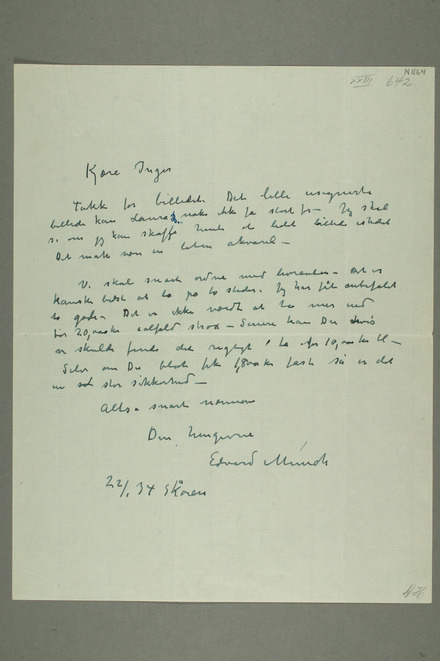 N 1164
XXIII 642
Kjære Inger
Takk for billedet. Det lille usignerte
billede kan Laura ikke få stort for – Jeg skal
se om jeg kan skaffe hende et lidet billede istedet
Det måtte være en liten akvarel –
Vi skal snart ordne med – Det er
kanske bedst at ta på to steder. Jeg har fåt anbefalt
to gode. Det er ikke værdt at ta mer end
for 20,000 kr – Senere kan Du hvis
vi skulde finde det rigtigt ta for 10,000 kr til –
Selv om Du blot fik 1,800 kr fast så er det
en stor sikkerhed –
Altså snart nærmere
Din hengivne
Edvard Munch
22/1 34 Skøien